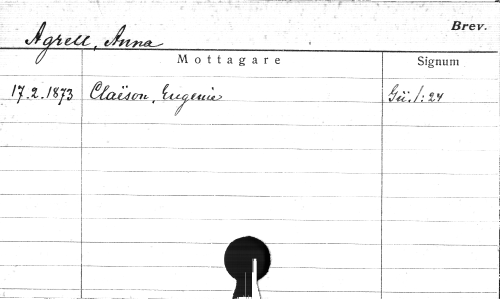 Brev.
Agrell, Anna
Mottagare Signum
17.2.1873 Claëson, Eugenie Gü.1:24